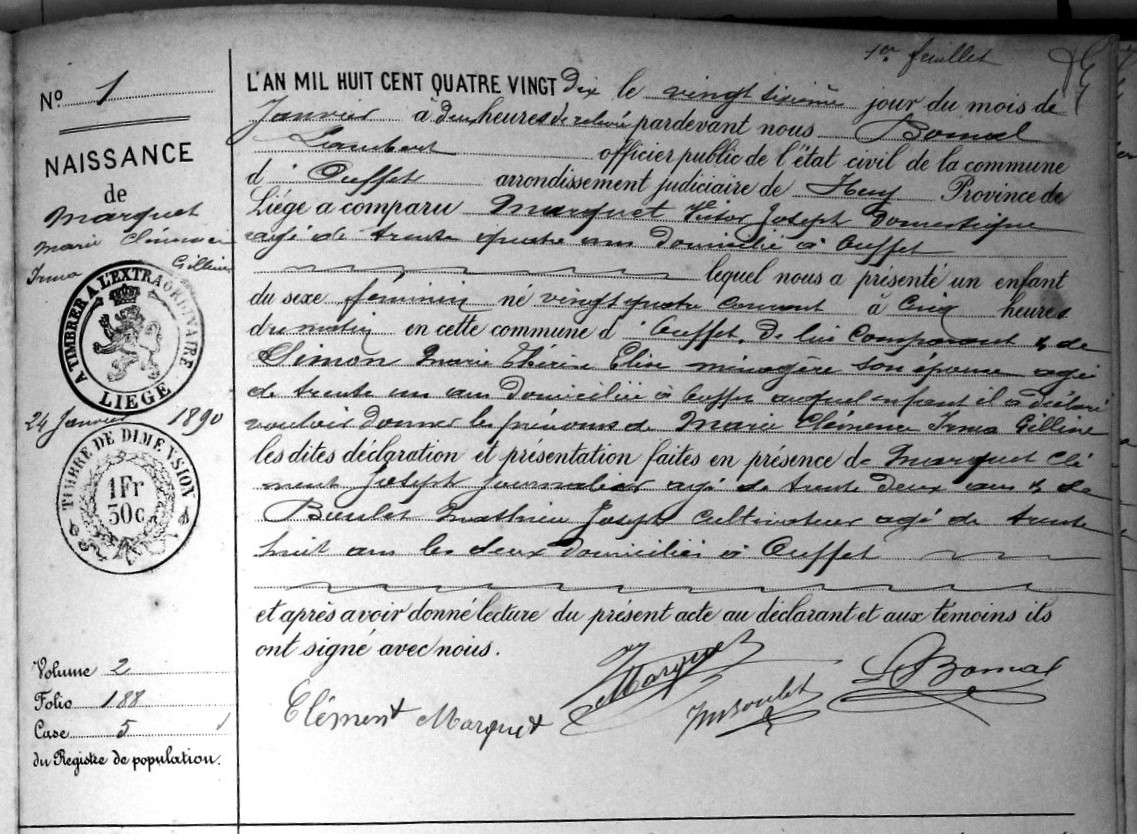 1er feuillet
No 1
NAISSANCE
de
Marquet
Marie Clémence
Irma Gilline
A TIMBRER A L'EXTRAORDINAIRE
LIEGE
24 Janvier 1890
TIMBRE DE DIMENSION
1Fr
30c
Volume 2
Folio 188
Case 5
du Registre de population.
L'AN MIL HUIT CENT QUATRE VINGT Dix le vingt sixième jour du mois de
Janvier à deux heures de relevé pardevant nous Bomal
Lambert officier public de l'état civil de la commune
d' Ouffet arrondissement judiciaire de Huy Province de
Liége a comparu Marquet Victor Joseph Domestique
agé de trente quatre ans domicilié à Ouffet
lequel nous a présenté un enfant
du sexe féminin né vingt quatre courant à cinq heures
du matin en cette commune d' Ouffet, de lui comparant & de
Simon Marie Thérèse Elise ménagère son épouse agé
de trente un ans domiciliée à Ouffet auquel enfant il a déclaré
vouloir donner les prénoms de Marie Clémence Irma Gilline
les dites déclaration et présentation faites en présence de Marquet Clé
ment Joseph journalier agé de trente deux ans & de
Boulet Mathieu Joseph cultivateur agé de trente
huit ans les deux domiciliés à Ouffet
et après avoir donné lecture du présent acte au déclarant et aux temoins ils
ont signé avec nous.
Marquet
L Bomal
Clément Marquet
JMBoulet